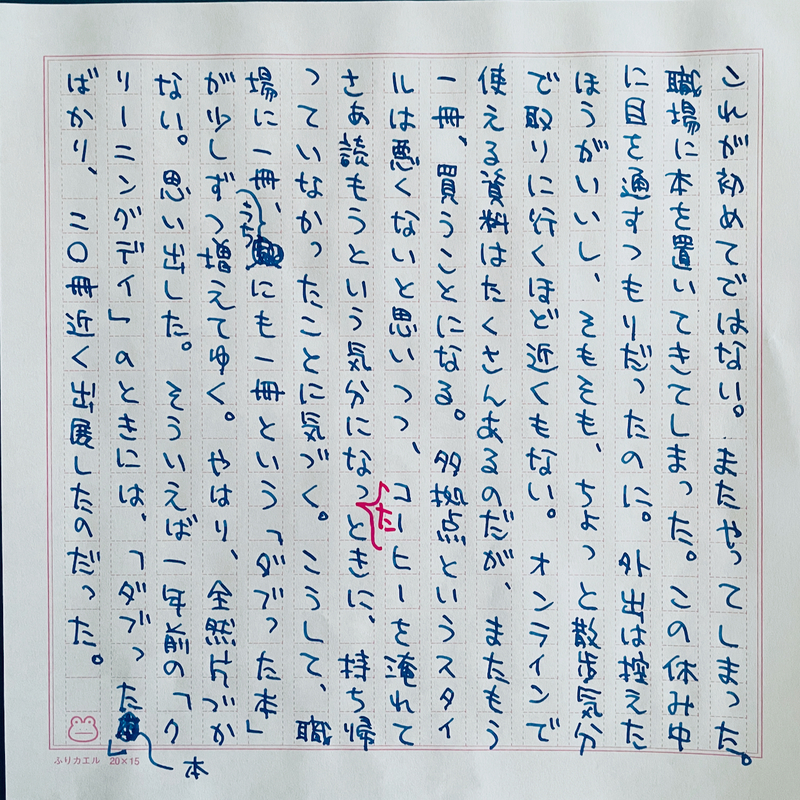 これが初めてではない。またやってしまった。
職場に本を置いてきてしまった。この休み中
に目を通すつもりだったのに。外出は控えた
ほうがいいし、そもそも、ちょっと散歩気分
で取りに行くほど近くもない。オンラインで
使える資料はたくさんあるのだが、またもう
一冊、買うことになる。多拠点というスタイ
ルは悪くないと思いつつ、コーヒーを淹れて
さあ読もうという気分になったときに、持ち帰
っていなかったことに気づく。こうして、職
場に一冊、うちにも一冊という「ダブった本」
が少しずつ増えてゆく。やはり、全然片づか
ない。思い出した。そういえば一年前の「ク
リーニングデイ」のときには、「ダブった本」
ばかり、二〇冊近く出展したのだった。
ふりカエル 20×15